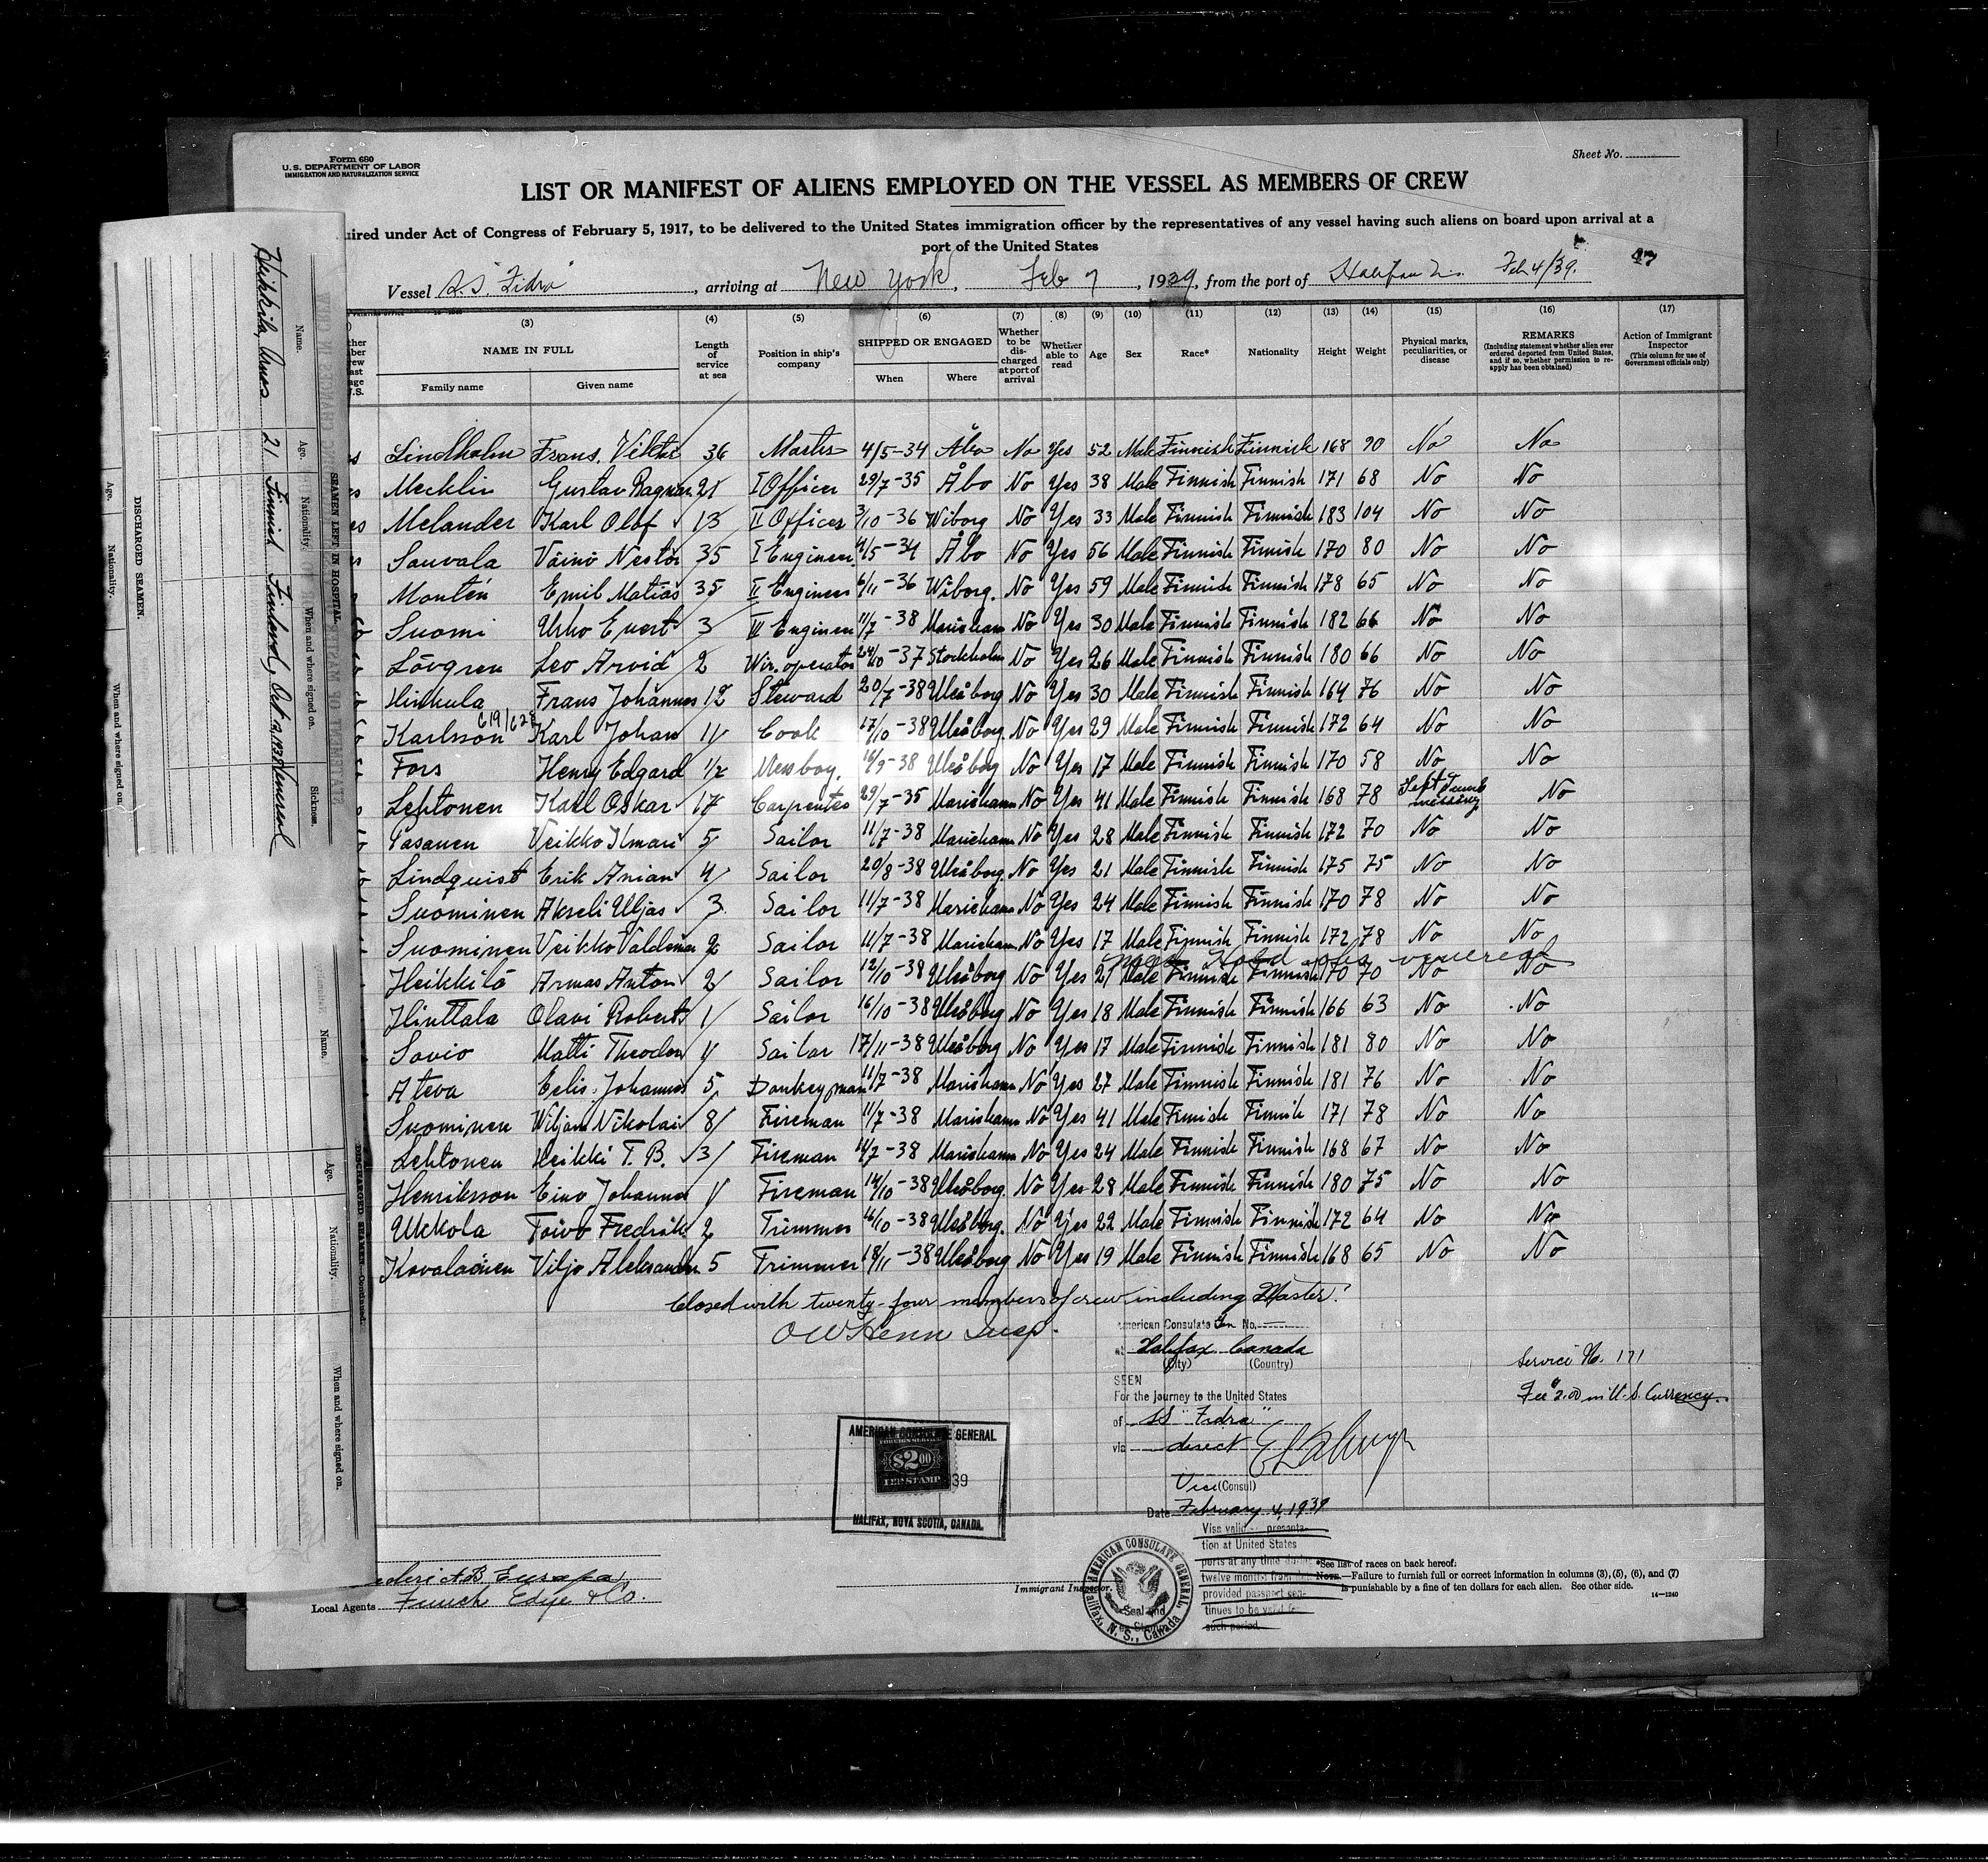 Form 680
U. S. DEPARTMENT OF LABOR
IMMIGRATION AND NATURALIZATION SERVICE
Sheet No.
LIST OR MANIFEST OF ALIENS EMPLOYED ON THE VESSEL AS MEMBERS OF CREW
uired under Act of Congress of February 5, 1917, to be delivered to the United States immigration officer by the representatives of any vessel having such aliens on board upon arrival at a
port of the United States
Vessel S.S. "Fidra", arriving at New York, Feb 7, 1939, from the port of Halifax Feb 4/39.
(3) (4) (5) (6) (7) (8) (9) (10) (11) (12) (13) (14) (15) (16) (17)
NAME IN FULL Length of service at sea Position in ship's company SHIPPED OR ENGAGED Whether to be discharged at port of arrival Whether able to read Age Sex Race* Nationality Height Weight Physical marks, peculiarities, or disease REMARKS (Including statement whether alien ever ordered deported from United States, and if so, whether permission to reapply has been obtained) Action of Immigrant Inspector (This column for use of Government officials only)
Family name Given name When Where
Lindholm Frans. Viktor 36 Master 4/5-34 Åbo No Yes 52 Male Finnish Finnish 168 90 No No
Mecklin Gustav Ragnar 21 I Officer 29/7-35 Åbo No Yes 38 Male Finnish Finnish 171 68 No No
Melander Karl Olof 13 II Officer 3/10-36 Wiborg No Yes 33 Male Finnish Finnish 183 104 No No
Sauvala Väinö Nestor 35 I Engineer 4/5-34 Åbo No Yes 56 Male Finnish Finnish 170 80 No No
Montén Emil Matias 35 II Engineer 6/11-36 Wiborg. No Yes 59 Male Finnish Finnish 178 65 No No
Suomi Urho Evert 3 III Engineer 11/7-38 Mariehamn No Yes 30 Male Finnish Finnish 182 66 No No
Lövgren Leo Arvid 2 Wir. operator 24/10-37 Stockholm No Yes 26 Male Finnish Finnish 180 66 No No
Hinkula Frans Johannes 12 Steward 20/7-38 Uleåborg No Yes 30 Male Finnish Finnish 164 76 No No
Karlsson Karl Johan 11 Cook 17/10-38 Uleåborg No Yes 29 Male Finnish Finnish 172 64 No No
Fors Henry Edgard 1/2 Messboy. 16/9-38 Uleåborg No Yes 17 Male Finnish Finnish 170 58 No No
Lehtonen Karl Oskar 17 Carpenter 29/7-35 Mariehamn No Yes 41 Male Finnish Finnish 168 78 missing No
Pasanen Veikko Ilmari 5 Sailor 11/7-38 Mariehamn No Yes 28 Male Finnish Finnish 172 70 No No
Lindquist Erik Anian 4 Sailor 20/8-38 Uleåborg. No Yes 21 Male Finnish Finnish 175 75 No No
Suominen Akseli Uljas 3 Sailor 11/7-38 Mariehamn No Yes 24 Male Finnish Finnish 170 78 No No
Suominen Veikko Valdemar 2 Sailor 11/7-38 Mariehamn No Yes 17 Male Finnish Finnish 172 78 No No
venereal
Heikkilä Armas Anton 2 Sailor 12/10-38 Uleåborg No Yes 21 Male Finnish Finnish 170 70 No No
Hinttala Olavi Robert 1 Sailor 16/10-38 Uleåborg No Yes 18 Male Finnish Finnish 166 63 No No
Savio Matti Theodor 1 Sailor 17/11-38 Uleåborg No Yes 17 Male Finnish Finnish 181 80 No No
Ateva Eelis. Johannes 5 Donkeyman 11/7-38 Mariehamn No Yes 27 Male Finnish Finnish 181 76 No No
Suominen Wiljam Nikolai 8 Fireman 11/7-38 Mariehamn No Yes 41 Male Finnish Finnish 171 78 No No
Lehtonen Heikki T. B. 3 Fireman 11/7-38 Mariehamn No Yes 24 Male Finnish Finnish 168 67 No No
Henriksson Eino Johannes 1 Fireman 14/10-38 Uleåborg. No Yes 28 Male Finnish Finnish 180 75 No No
Ukkola Toivo Fredrik 2 Trimmer 16/10-38 Uleåborg. No Yes 22 Male Finnish Finnish 172 64 No No
Kovalainen Viljo Aleksander 5 Trimmer 18/11-38 Uleåborg No Yes 19 Male Finnish Finnish 168 65 No No
Closed with twenty-four members of crew including Master.
American Consulate Gen No.
at Halifax Canada
(City) (Country)
SEEN
For the journey to the United States
of SS "Fidra"
via direct
Vice (Consul)
Date February 4, 1939
Service No. 171
Fee $2.00 in U.S. Currency.
AMERICAN CONSULATE GENERAL
$2.00
FEE STAMP
39
HALIFAX, NOVA SCOTIA, CANADA.
Vise valid presenta-
tion at United States
ports at any time
twelve months from
provided passport con-
tinues to be valid for
such period.
AMERICAN CONSULATE GENERAL
Halifax, N. S., Canada
Seal and
Immigrant Inspector.
*See list of races on back hereof.
NOTE.—Failure to furnish full or correct information in columns (3), (5), (6), and (7)
is punishable by a fine of ten dollars for each alien. See other side.
14—1240
Local Agents Funch Edye & Co.
SEAMEN LEFT IN HOSPITAL
Name. Age. Nationality. When and where signed on. Sickness.
Heikkila, Armas 21 Finnish Finland, Oct 12, 1938 Venereal
DISCHARGED SEAMEN.
Age. Nationality. When and where signed on.
DISCHARGED SEAMEN—Continued.
Name. Age. Nationality. When and where signed on.